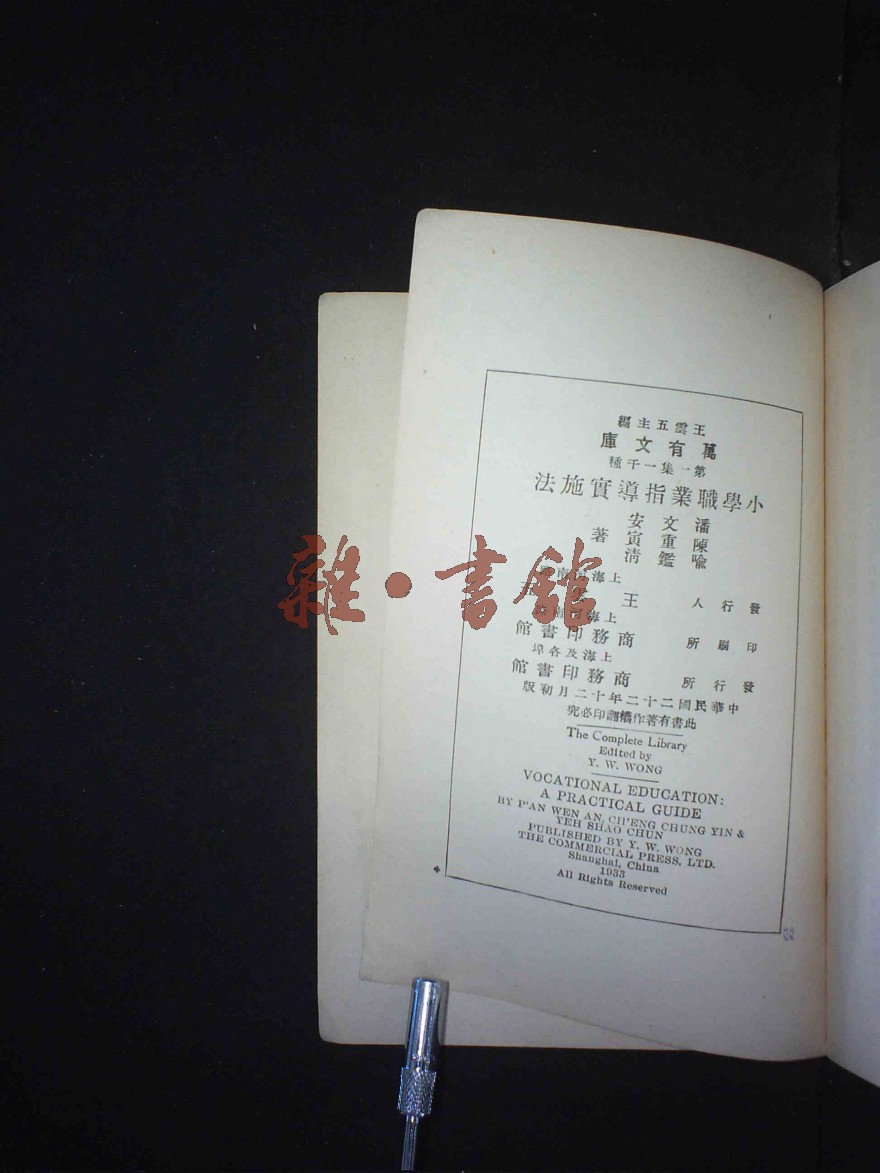 王雲五主編
萬有文庫
第一集一千種
小學職業指導實施法
潘文安
陳重寅 著
喻鑑清
上海河南
發行人 王 五
上海河南
印刷所 商務印書館
上海及各埠
發行所 商務印書館
中華民國二十二年十二月初版
此書有著作權翻印必究
The Complete Library
Edited by
Y. W. WONG
VOCATIONAL EDUCATION:
A PRACTICAL GUIDE
BY P'AN WEN AN, CH'ENG CHUNG YIN &
YEH SHAO CHUN
PUBLISHED BY Y. W. WONG
THE COMMERCIAL PRESS, LTD.
Shanghai, China
1933
All Rights Reserved
雜·書館